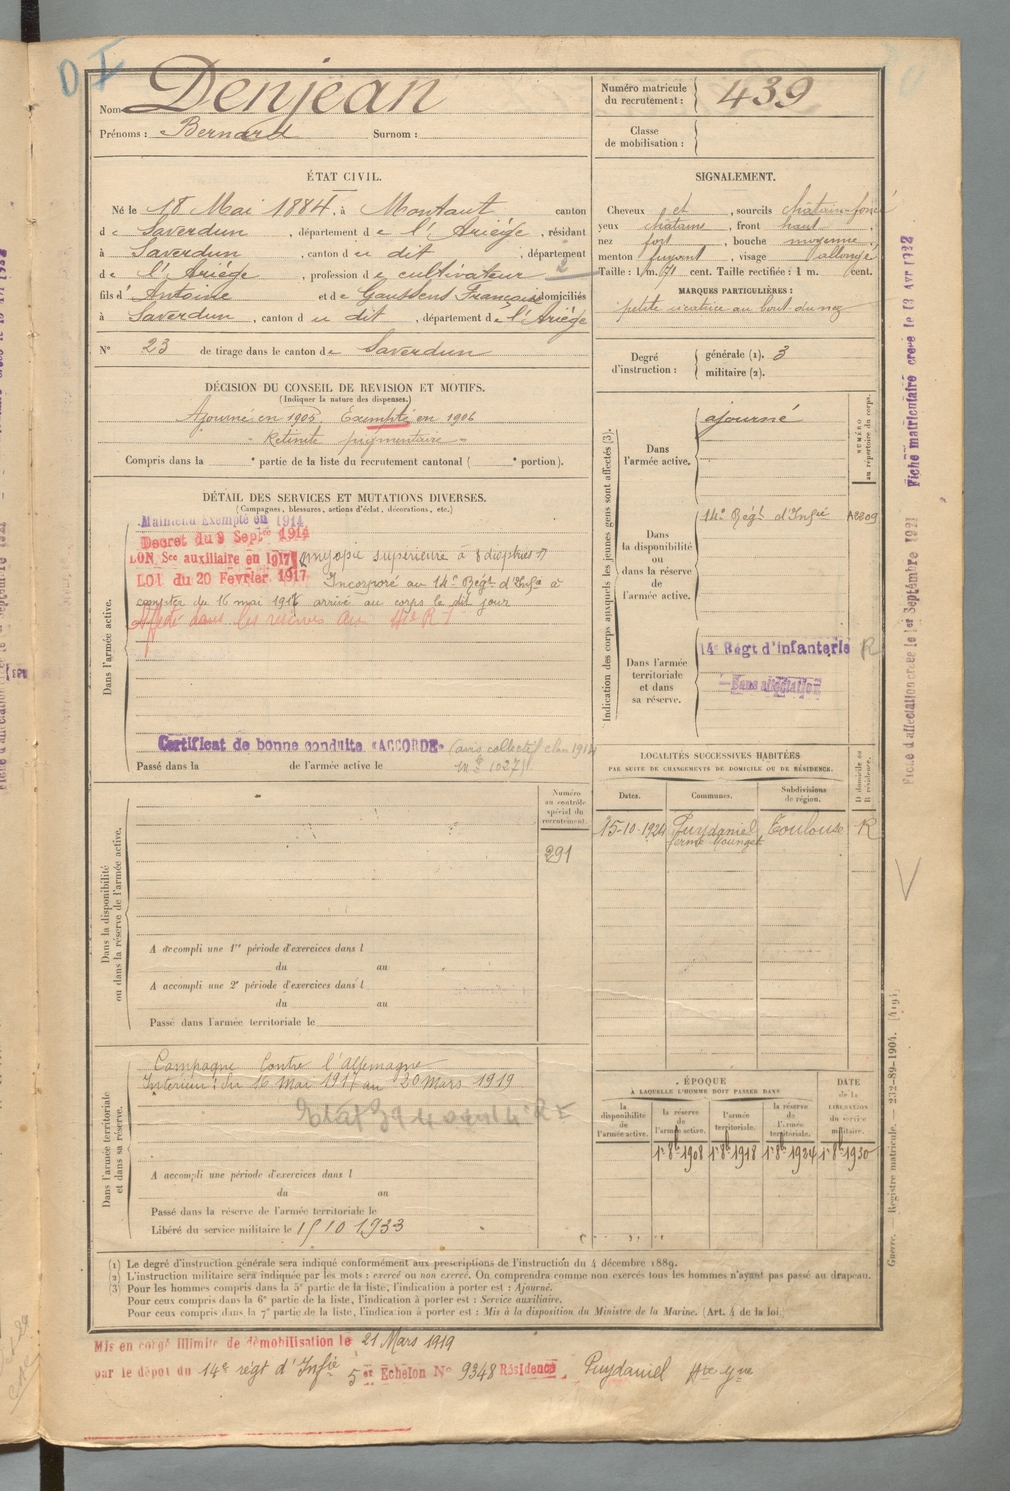 D I
Nom Denjean
Prénoms : Bernard Surnom :
Numéro matricule du recrutement : 439
Classe de mobilisation :
ÉTAT CIVIL.
Né le 18 Mai 1884, à Montaut canton
de Saverdun, département de l'Ariège, résidant
à Saverdun, canton du dit, département
de l'Ariège, profession de cultivateur 2
fils d'Antoine et de Gaussens Françoise domiciliés
à Saverdun, canton du dit, département de l'Ariège
N° 23 de tirage dans le canton de Saverdun
SIGNALEMENT.
Cheveux et, sourcils châtain-foncé
yeux châtains, front haut,
nez fort, bouche moyenne,
menton fuyant, visage allongé
Taille : 1 m. 71 cent. Taille rectifiée : 1 m. cent.
MARQUES PARTICULIÈRES :
petite cicatrice au bout du nez
Degré d'instruction : générale (1). 3
militaire (2).
DÉCISION DU CONSEIL DE REVISION ET MOTIFS.
(Indiquer la nature des dispenses.)
Ajourné en 1905 Exempté en 1906
- Rétinite pigmentaire -
Compris dans la e partie de la liste du recrutement cantonal ( e portion).
DÉTAIL DES SERVICES ET MUTATIONS DIVERSES.
(Campagnes, blessures, actions d'éclat, décorations, etc.)
Dans l'armée active.
Maintenu Exempté en 1914
Décret du 9 Septre 1914
LON Sce auxiliaire en 1917 myopie supérieure à 8 dioptries
LOI du 20 Fevrier 1917 Incorporé au 14e Régt d'Infie à
compter du 16 mai 1917 arrivé au corps le dit jour
Affecté dans les réserves au
Certificat de bonne conduite «ACCORDÉ» (avis collectif
Passé dans la de l'armée active le
Indication des corps auxquels les jeunes gens sont affectés (3).
NUMÉRO au répertoire du corps.
Dans l'armée active. ajourné
Dans la disponibilité ou dans la réserve de l'armée active. 14e Régt d'Infie A2209
Dans l'armée territoriale et dans sa réserve. 14e Régt d'infanterie R
Sans affectation
LOCALITÉS SUCCESSIVES HABITÉES
PAR SUITE DE CHANGEMENTS DE DOMICILE OU DE RÉSIDENCE.
Dates. Communes. Subdivisions de région. D domicile ou R résidence.
15-10-1924 Puydaniel Toulouse R
ferme
Dans la disponibilité ou dans la réserve de l'armée active.
Numéro au contrôle spécial du recrutement.
291
A accompli une 1re période d'exercices dans l
du au
A accompli une 2e période d'exercices dans l
du au
Passé dans l'armée territoriale le
Dans l'armée territoriale et dans sa réserve.
Campagne Contre l'Allemagne
Intérieur : du 16 Mai 1917 au 20 Mars 1919
A accompli une période d'exercices dans l
du au
Passé dans la réserve de l'armée territoriale le
Libéré du service militaire le 15 10 1933
ÉPOQUE
À LAQUELLE L'HOMME DOIT PASSER DANS
DATE de la LIBÉRATION du service militaire.
la disponibilité de l'armée active. la réserve de l'armée active. l'armée territoriale. la réserve de l'armée territoriale.
1r 8b 1908 1r 8b 1918 1r 8b 1924 1r 8b 1930
(1) Le degré d'instruction générale sera indiqué conformément aux prescriptions de l'instruction du 4 décembre 1889.
(2) L'instruction militaire sera indiquée par les mots : exercé ou non exercé. On comprendra comme non exercés tous les hommes n'ayant pas passé au drapeau.
(3) Pour les hommes compris dans la 5e partie de la liste, l'indication à porter est : Ajourné.
Pour ceux compris dans la 6e partie de la liste, l'indication à porter est : Service auxiliaire.
Pour ceux compris dans la 7e partie de la liste, l'indication à porter est : Mis à la disposition du Ministre de la Marine. (Art. 4 de la loi.)
Mis en congé illimité de démobilisation le 21 Mars 1919
par le dépôt du 14e régt d'Infie 5er Échelon N° 9348 Résidence Puydaniel Hte Gne
Guerre. — Registre matricule. — 232-89-1904. (419)
Fiche d'affectation créée le 1er Septembre 1921
Fiche matriculaire créée le 13 Avr 1932